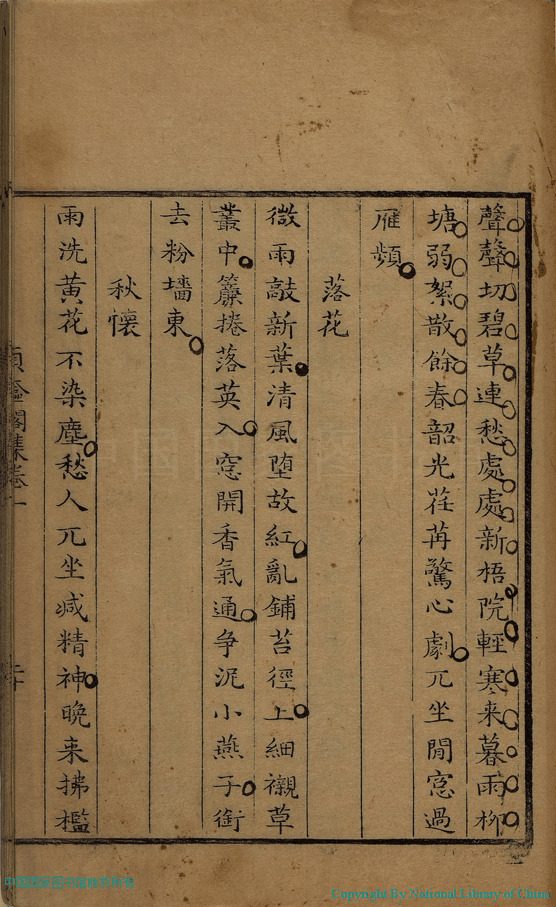 聲聲切碧草連愁處處新梧院輕寒来暮雨柳
塘弱絮散餘春韶光荏苒驚心劇兀坐閒窓過
雁頻
落花
微雨敲新葉清風墮故紅亂鋪苔徑上細襯草
叢中簾捲落英入窓開香氣通争泥小燕子銜
去粉墻東
秋懷
雨洗黄花不染塵愁人兀坐减精神晚来拂檻
閣集卷一
Copyright By National Library of China